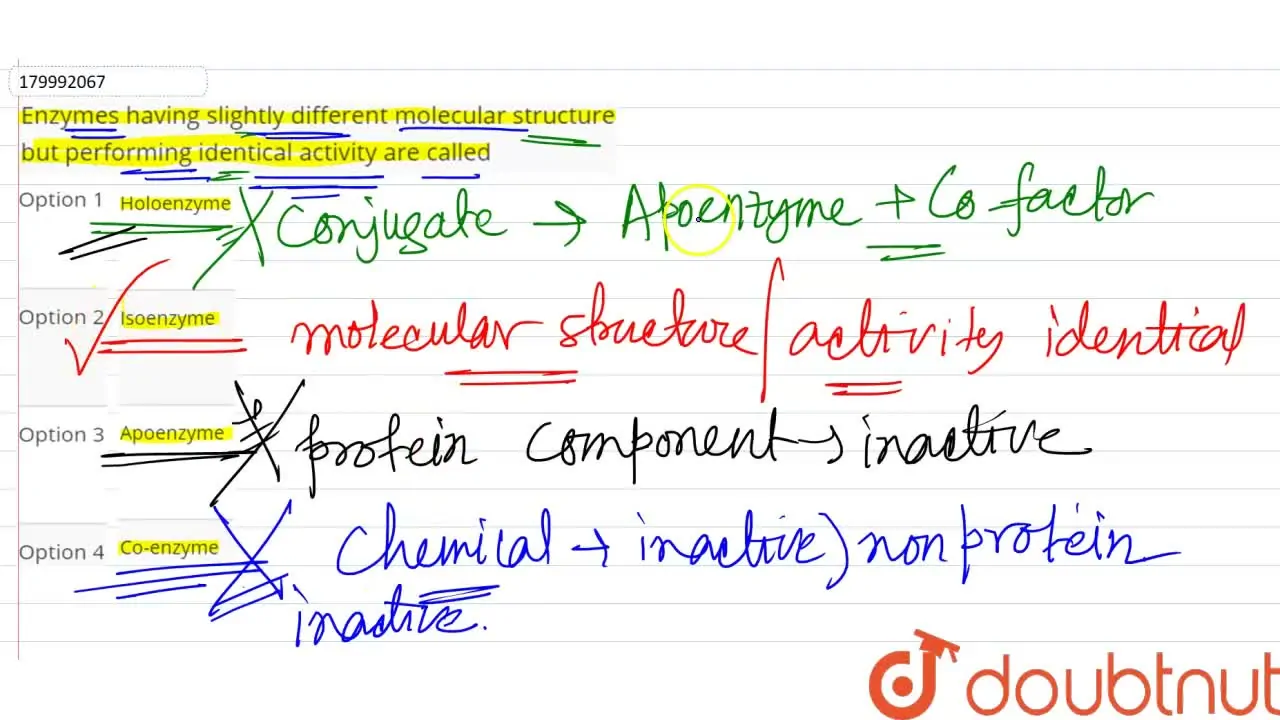 179992067
Enzymes having slightly different molecular structure
but performing identical activity are called
Option 1 Holoenzyme Conjugate → Apoenzyme + Co factor
Option 2 Isoenzyme molecular structure / activity identical
Option 3 Apoenzyme protein component → inactive
Option 4 Co-enzyme chemical → inactive) non protein
inactive.
doubtnut